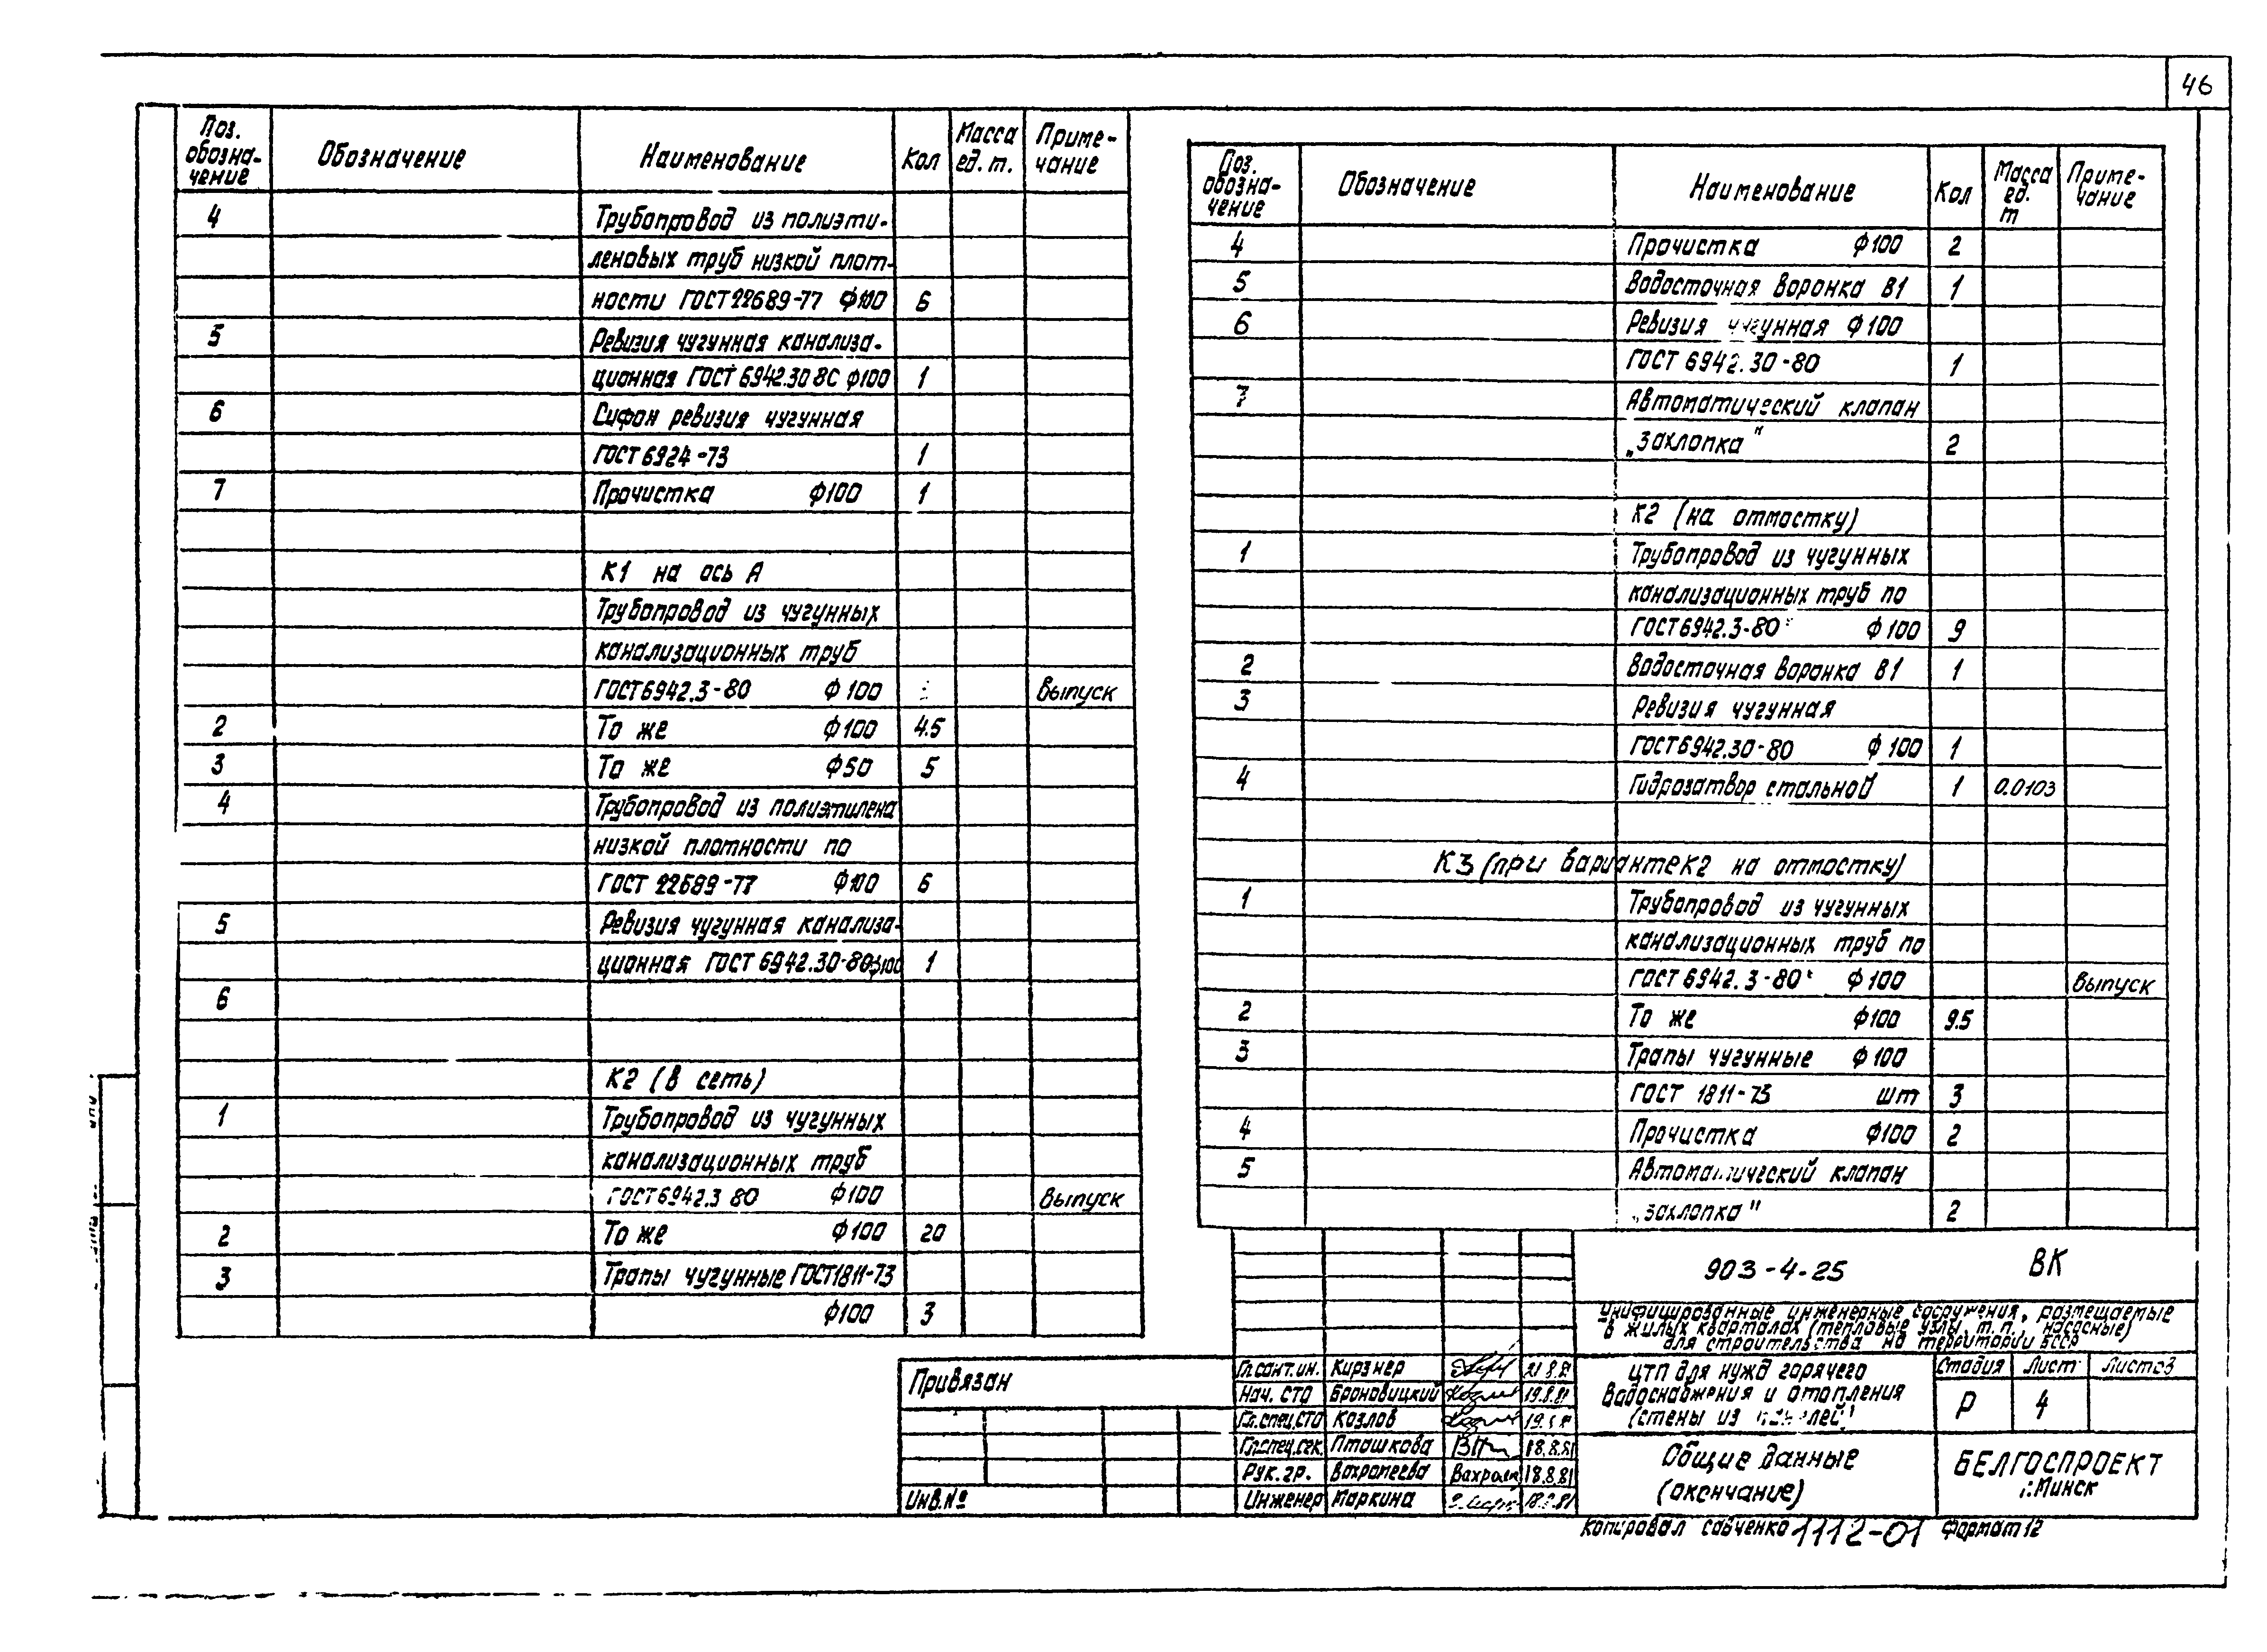 46
Поз. обозна- чение Обозначение Наименование Кол Масса ед. т. Приме- чание
4 Трубопровод из полиэти-
леновых труб низкой плот-
ности ГОСТ 22689-77 ф100 6
5 Ревизия чугунная канализа-
ционная ГОСТ 6942.30 80 ф100 1
6 Сифон ревизия чугунная
ГОСТ 6924-73 1
7 Прочистка ф100 1
К1 на ось А
Трубопровод из чугунных
канализационных труб
ГОСТ 6942.3-80 ф100 выпуск
2 То же ф100 4.5
3 То же ф50 5
4 Трубопровод из полиэтилена
низкой плотности по
ГОСТ 22689-77 ф100 6
5 Ревизия чугунная канализа-
ционная ГОСТ 6942.30-80 ф100 1
6
К2 (в сеть)
1 Трубопровод из чугунных
канализационных труб
ГОСТ 6942.3 80 ф100 выпуск
2 То же ф100 20
3 Трапы чугунные ГОСТ 1811-73
ф100 3
Поз. обозна- чение Обозначение Наименование Кол Масса ед. т Приме- чание
4 Прочистка ф100 2
5 Водосточная воронка В1 1
6 Ревизия чугунная ф100
ГОСТ 6942.30-80 1
7 Автоматический клапан
„захлопка" 2
К2 (на отмостку)
1 Трубопровод из чугунных
канализационных труб по
ГОСТ 6942.3-80 ф100 9
2 Водосточная воронка В1 1
3 Ревизия чугунная
ГОСТ 6942.30-80 ф100 1
4 Гидрозатвор стальной 1 0.0103
К3 (при варианте К2 на отмостку)
1 Трубопровод из чугунных
канализационных труб по
ГОСТ 6942.3-80 ф100 выпуск
2 То же ф100 9.5
3 Трапы чугунные ф100
ГОСТ 1811-73 шт 3
4 Прочистка ф100 2
5 Автоматический клапан
„захлопка" 2
903-4-25 ВК
Унифицированные инженерные сооружения, размещаемые
в жилых кварталах (тепловые узлы, т.п., насосные)
для строительства на территории БССР
Привязан
Инв.№
Гл.сант.ин. Кирзнер 21.8.81
Нач. СТО Броновицкий 19.8.81
Гл.спец.СТО Козлов 19.8.81
Гл.спец.сек. Пташкова 18.8.81
Рук.гр. Вахромеева 18.8.81
Инженер Маркина 18.8.81
ЦТП для нужд горячего
водоснабжения и отопления
(стены из панелей)
Стадия Лист Листов
Р 4
Общие данные
(окончание)
БЕЛГОСПРОЕКТ
г.Минск
Копировал Савченко 1112-01 Формат 12